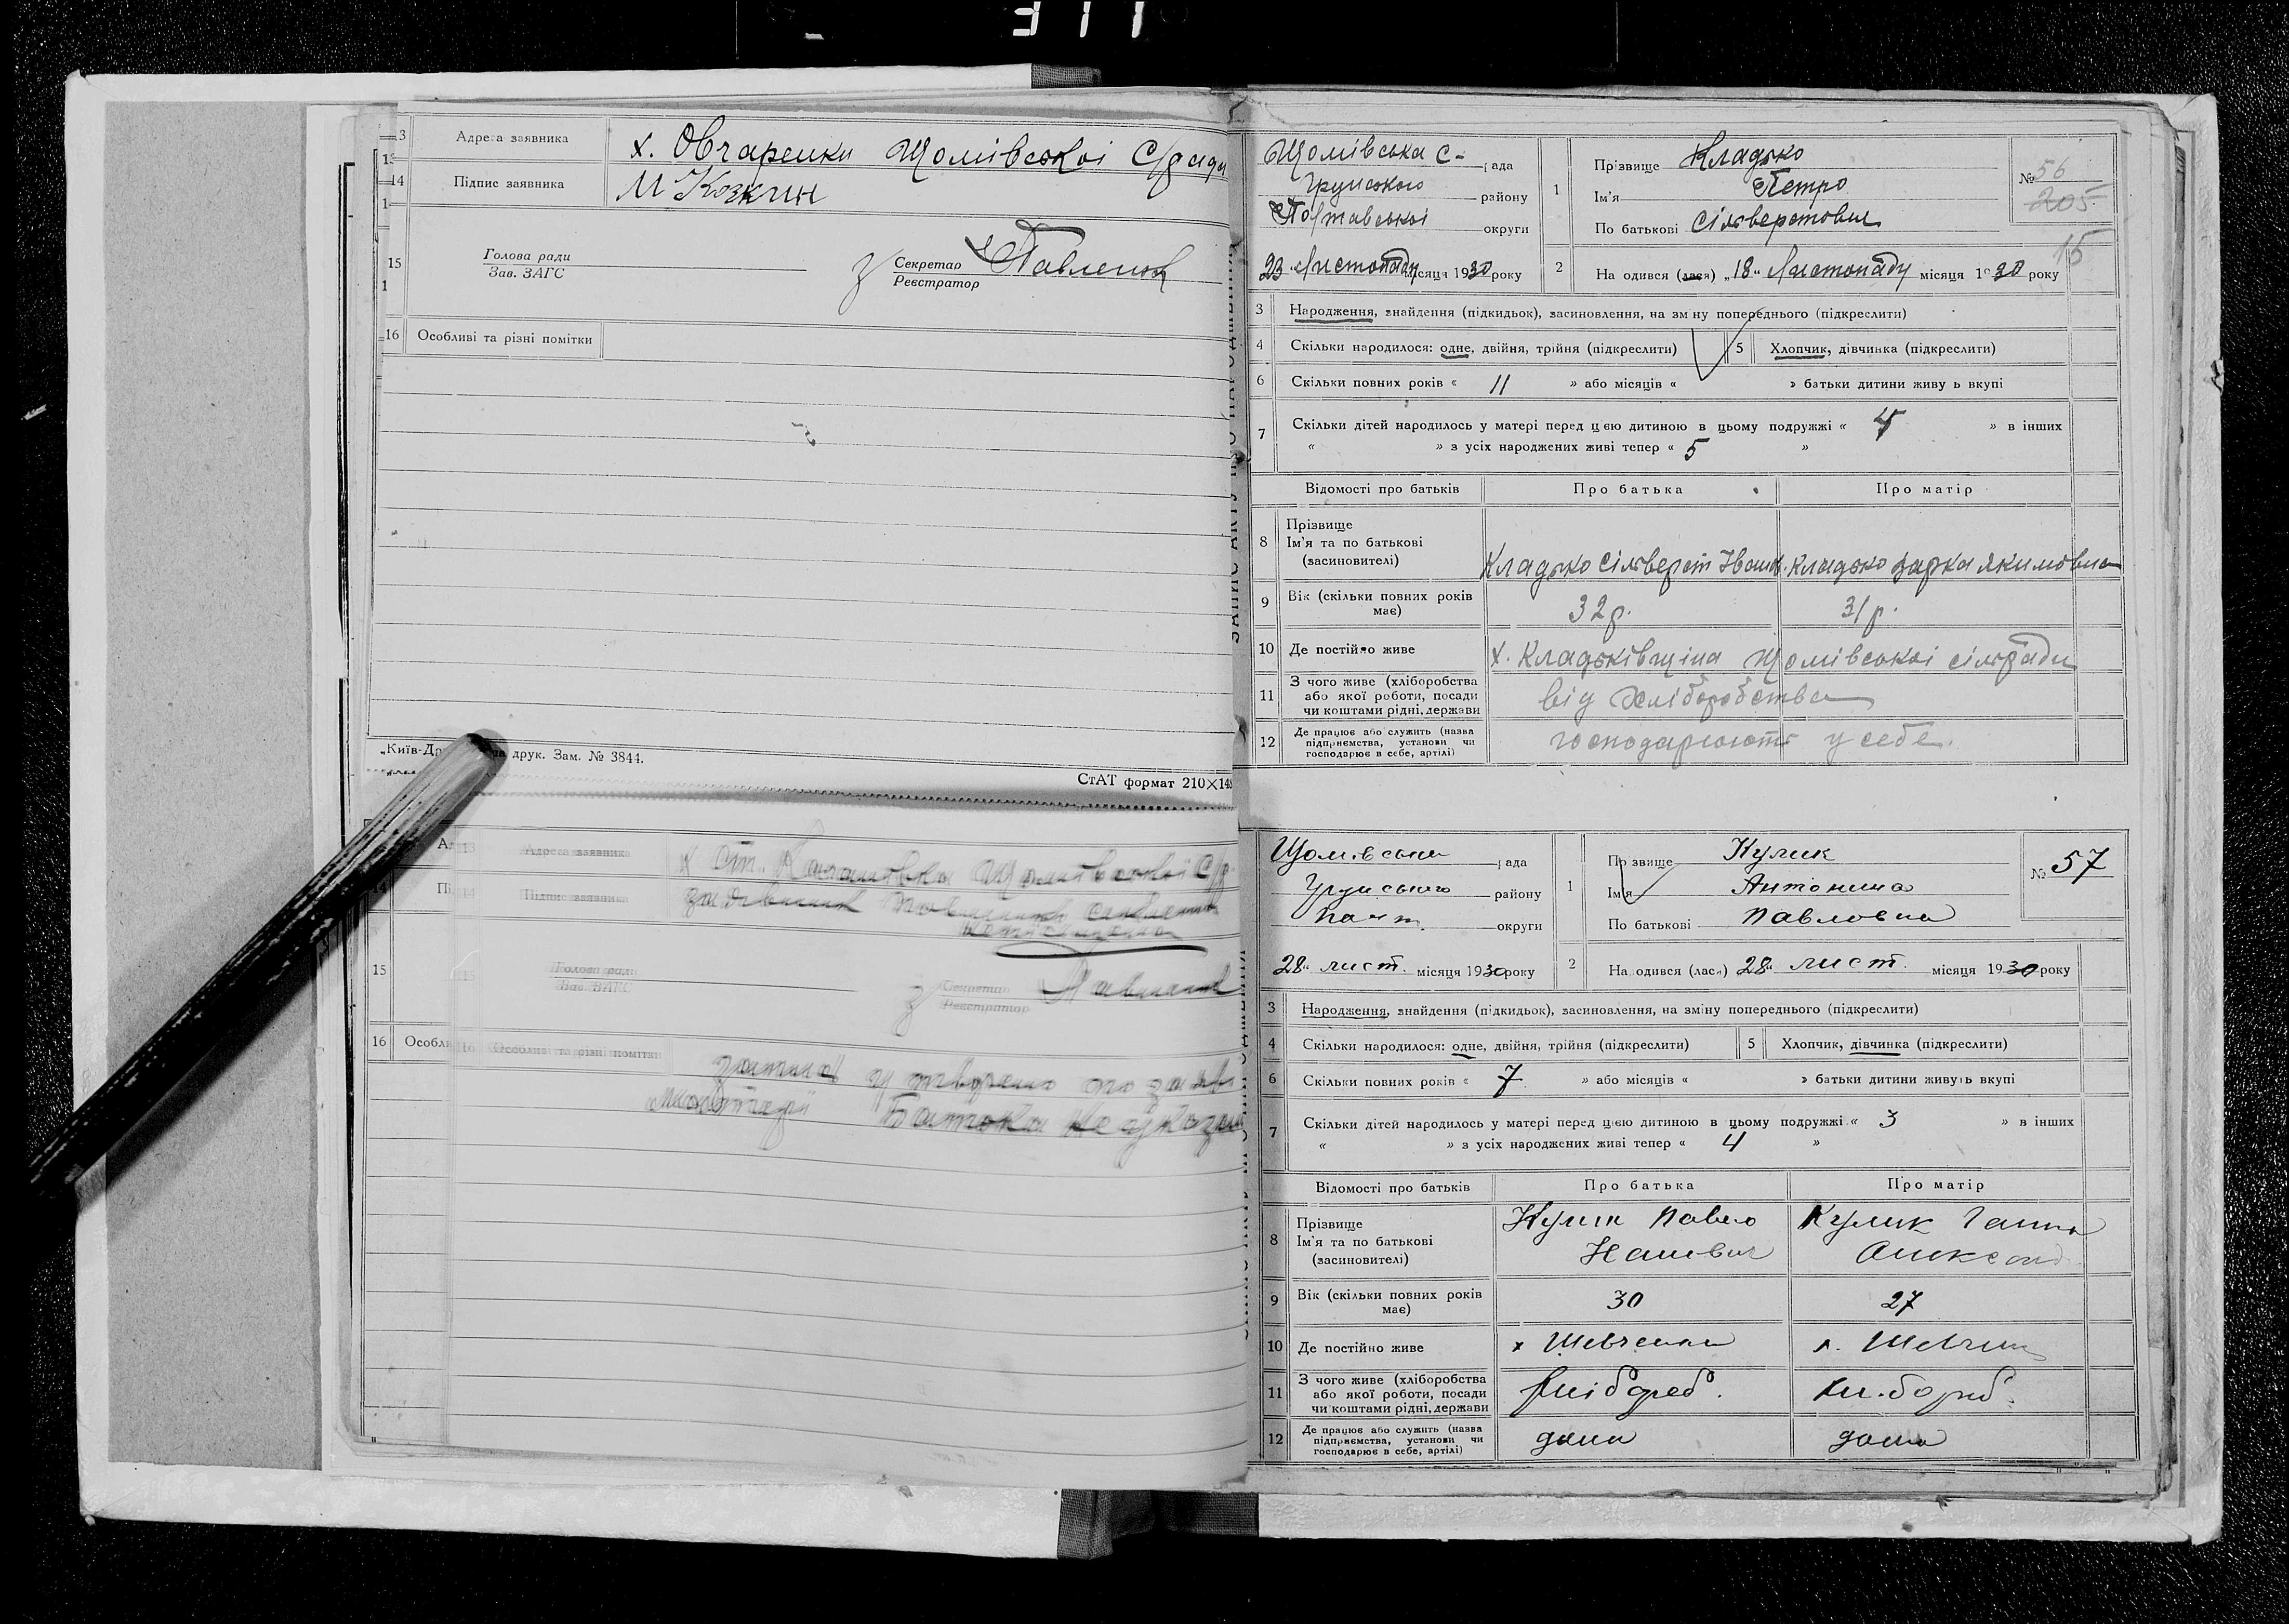 311
13 Адреса заявника х. Овчаренки Щомівської С/ради
14 Підпис заявника М Козкин
15 Голова ради
Зав. ЗАГС
Секретар
Реєстратор
16 Особливі та різні помітки
друк. Зам. № 3844.
СтАТ формат 210×148
13 Адреса заявника
14 Підпис заявника
15 Голова ради
Зав. ЗАГС
Секретар
Реєстратор
16 Особливі та різні помітки
Батька не
Щомівська с- рада
Грунського району
Полтавської округи
23 Листопаду місяця 1930 року
1 Прізвище Кладько
Ім'я Петро
По батькові Сільверстович
№ 56
205
15
2 Народився (лася) „18" Листопаду місяця 1930 року
3 Народження, знайдення (підкидьок), засиновлення, на зміну попереднього (підкреслити)
4 Скільки народилося: одне, двійня, трійня (підкреслити) 5 Хлопчик, дівчинка (підкреслити)
6 Скільки повних років « 11 » або місяців « » батьки дитини живуть вкупі
7 Скільки дітей народилось у матері перед цією дитиною в цьому подружжі « 4 » в інших
« » з усіх народжених живі тепер « 5 »
Відомості про батьків Про батька Про матір
8 Прізвище
Ім'я та по батькові
(засиновителі)
Кладько Сільверст Іван. Кладько Якимовна
9 Вік (скільки повних років має) 32р. 31р.
10 Де постійно живе х. Кладьківщина Щомівської сільради
11 З чого живе (хліборобства
або якої роботи, посади
чи коштами рідні, держави
від хліборобства
12 Де працює або служить (назва
підприємства, установи чи
господарює в себе, артілі)
господарюють у себе.
Щомівська рада
Грунського району
Полт. округи
28 лист. місяця 1930 року
1 Прізвище Кулик
Ім'я Антонина
По батькові Павловна
№ 57
2 Народився (лася) 28 лист. місяця 1930 року
3 Народження, знайдення (підкидьок), засиновлення, на зміну попереднього (підкреслити)
4 Скільки народилося: одне, двійня, трійня (підкреслити) 5 Хлопчик, дівчинка (підкреслити)
6 Скільки повних років « 7 » або місяців « » батьки дитини живуть вкупі
7 Скільки дітей народилось у матері перед цією дитиною в цьому подружжі « 3 » в інших
« » з усіх народжених живі тепер « 4 »
Відомості про батьків Про батька Про матір
8 Прізвище
Ім'я та по батькові
(засиновителі)
Кулик Павло Кулик Ганна
9 Вік (скільки повних років має) 30 27
10 Де постійно живе х Шевченки х. Шевченки
11 З чого живе (хліборобства
або якої роботи, посади
чи коштами рідні, держави
хлібороб. хл.бороб.
12 Де працює або служить (назва
підприємства, установи чи
господарює в себе, артілі)
дома дома